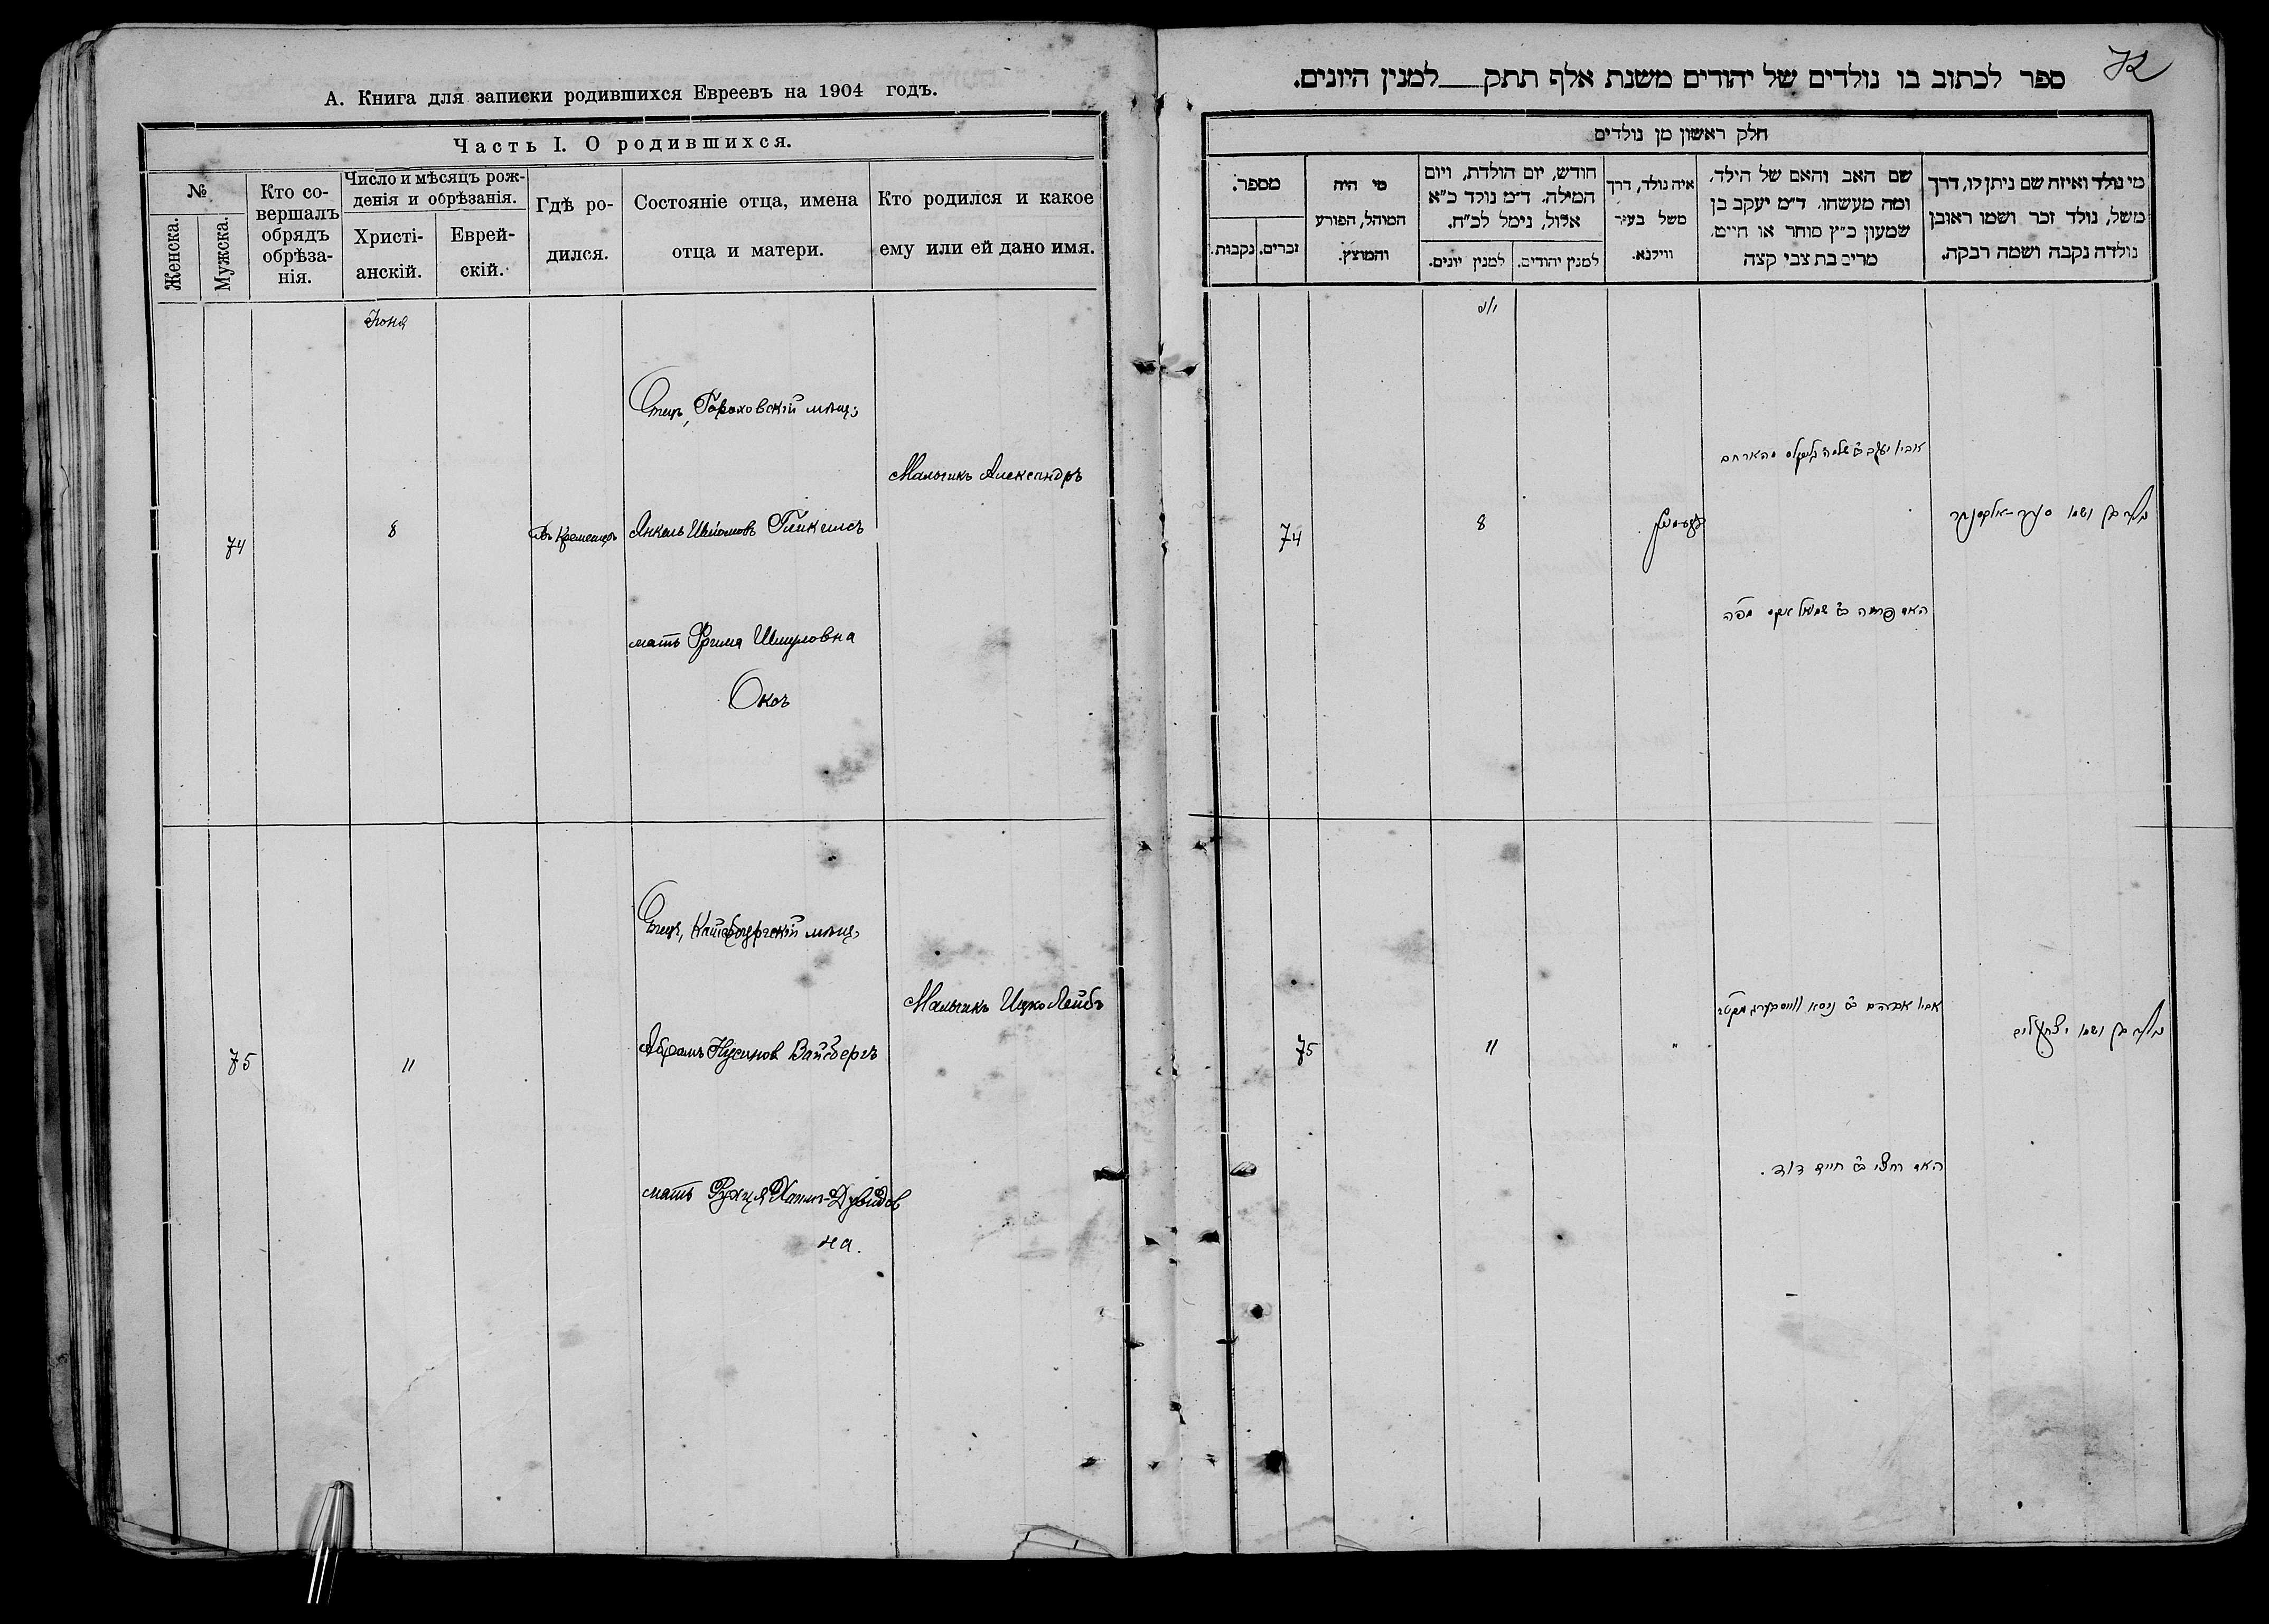 А. Книга для записки родившихся Евреевъ на 1904 годъ.
Часть I. О родившихся.
№
Женска.
Мужска.
Кто со-
вершалъ
обрядъ
обрѣза-
нія.
Число и мѣсяцъ рож-
денія и обрѣзанія.
Христі-
анскій.
Еврей-
скій.
Гдѣ ро-
дился.
Состояніе отца, имена
отца и матери.
Кто родился и какое
ему или ей дано имя.
74
8
Въ Кременцѣ
Отецъ, Гороховскій мѣщ:
Анкель
мать Фрима Шмуловна
Окоъ
Мальчикъ Александръ
75
11
Отецъ,
мѣщ:
Абрамъ Нусинов Вайсбергъ
мать Рухця Хаим-Дувидов
на.
Мальчикъ Ицко Лейбъ
72
ספר לכתוב בו נולדים של יהודים משנת אלף תתק למנין היונים.
חלק ראשון מן נולדים
מי נולד ואיזה שם ניתן לו, דרך
משל, נולד זכר ושמו ראובן
נולדה נקבה ושמה רבקה.
שם האב והאם של הילד,
ומה מעשהו. ד״מ יעקב בן
שמעון כ״ץ סוחר או חייט.
מרים בת צבי קצה
איה נולד, דרך
משל בעיר
ווילנא.
חודש, יום הולדת, ויום
המילה. ד״מ נולד כ״א
אלול, נימל לכ״ח.
למנין יהודים.
למנין יונים.
מי היה
המוהל, הפורע
והמוצץ.
מספר.
זכרים.
נקבות.
74
8
ושמו סנדר-אלקסנדר
אביו יעקב ב״ר שלמה
האם פרומה ב״ר שמואל
75
11
"
אביו אברהם ב״ר ניסא ווייסבערג
האם רחצי ב״ר חיים דוד.